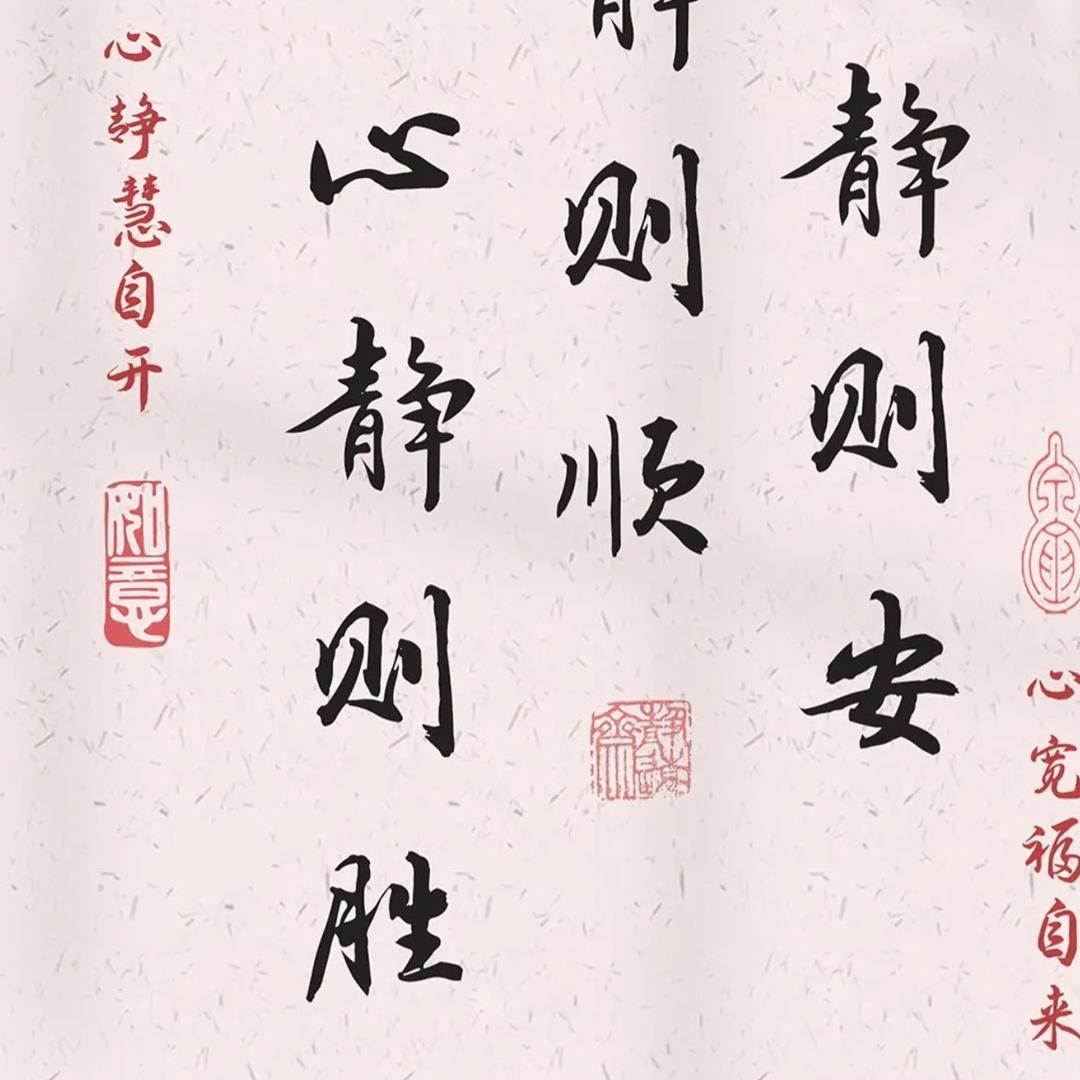 心宽福自来
静则安
静则顺
心静则胜
心静慧自开
如意